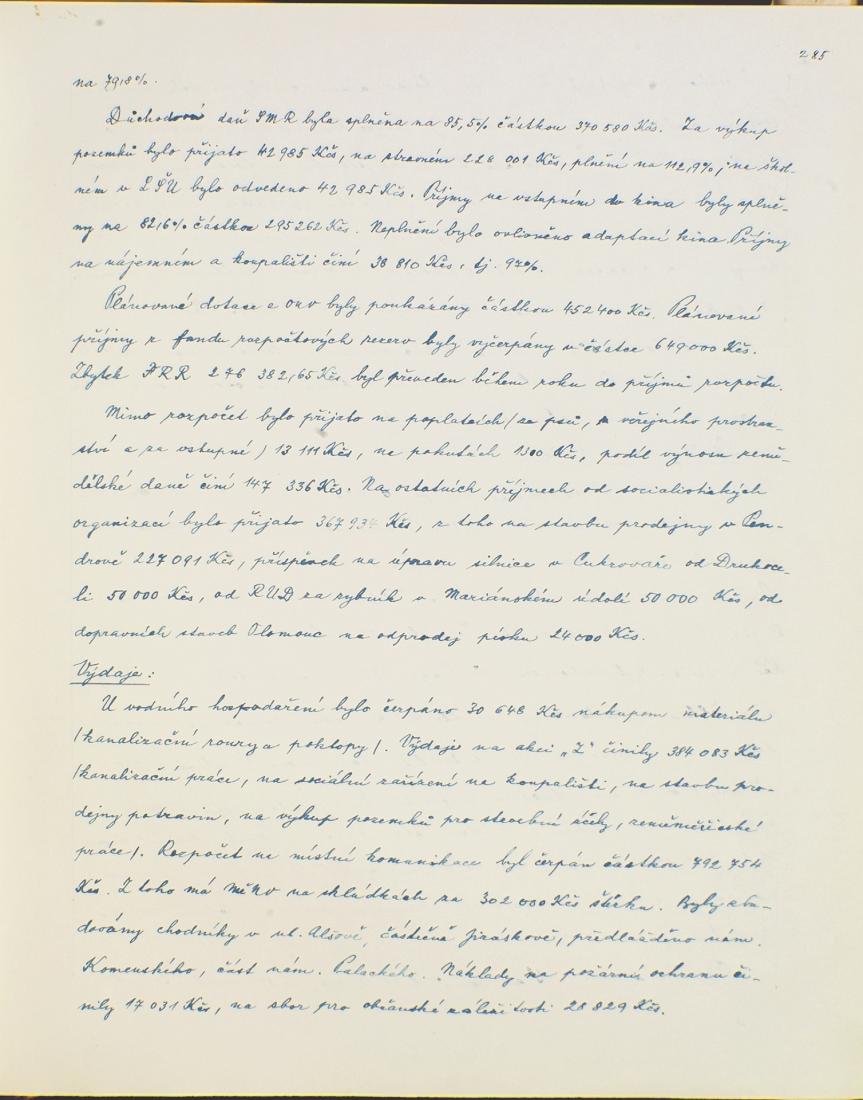 285
na 79,8%.
Důchodová daň SMR byla splněna na 85,5% částkou 370 580 Kčs. Za výkup
pozemků bylo přijato 42 985 Kčs, na stravném 228 001 Kčs, plnění na 112,9%, na škol-
ném v LŠU bylo odvedeno 42 985 Kčs. Příjmy na vstupném do kina byly splně-
ny na 82,6% částkou 295 262 Kčs. Neplnění bylo ovlivněno adaptací kina. Příjmy
na nájemném a koupališti činí 38 810 Kčs, tj. 97%.
Plánované dotace z ONV byly poukázány částkou 452 400 Kčs. Plánované
příjmy z fondu rozpočtových rezerv byly vyčerpány v částce 649 000 Kčs.
Zbytek FRR 276 382,65 Kčs byl převeden během roku do příjmů rozpočtu.
Mimo rozpočet bylo přijato na poplatcích /ze psů, z veřejného prostran-
ství a za vstupné/ 13 111 Kčs, na pokutách 1300 Kčs, podíl výnosu země-
dělské daně činí 147 336 Kčs. Na ostatních příjmech od socialistických
organizací bylo přijato Kčs, z toho na stavbu prodejny v Pen-
drově 227 091 Kčs, příspěvek na úpravu silnice v Cukrováře od Drukoce-
li 50 000 Kčs, od RUD za rybník v Mariánském údolí 50 000 Kčs, od
dopravních staveb Olomouc na odprodej písku 24 000 Kčs.
Výdaje:
U vodního hospodaření bylo čerpáno 30 648 Kčs nákupem materiálu
/kanalizační roury a poklopy/. Výdaje na akci „Z" činily 384 083 Kčs
/kanalizační práce, na sociální zařízení na koupališti, na stavbu pro-
dejny potravin, na výkup pozemků pro stavební účely, zeměměřičské
práce/. Rozpočet na místní komunikace byl čerpán částkou 792 754
Kčs. Z toho má MěNV na skládkách za 302 000 Kčs štěrku. Byly vybu-
dovány chodníky v ul. Alšově, částečně Jiráskově, předlážděno nám.
Komenského, část nám. Palackého. Náklady na požární ochranu či-
nily 17 031 Kčs, na sbor pro občanské záležitosti 28 829 Kčs.